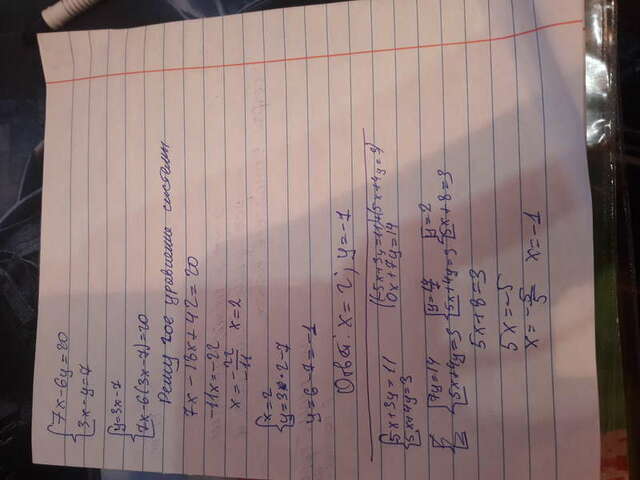 {7x-6y=20
{3x-y=7
{y=3x-7
{7x-6(3x-7)=20
Решу 2ое уравнение системы
7x-18x+42=20
-11x=-22
x=-22/-11 x=2
{x=2
{y=3·2-7
y=6-7=-1
Ответ: x=2; y=-1
{5x+3y=11
{5x+4y=3
0x+7y=14
{7y=14
{5x+4y=3
{5x+4y=3
{y=2
{5x+8=3
5x+8=3
5x=-5
x=-5/5 x=-1